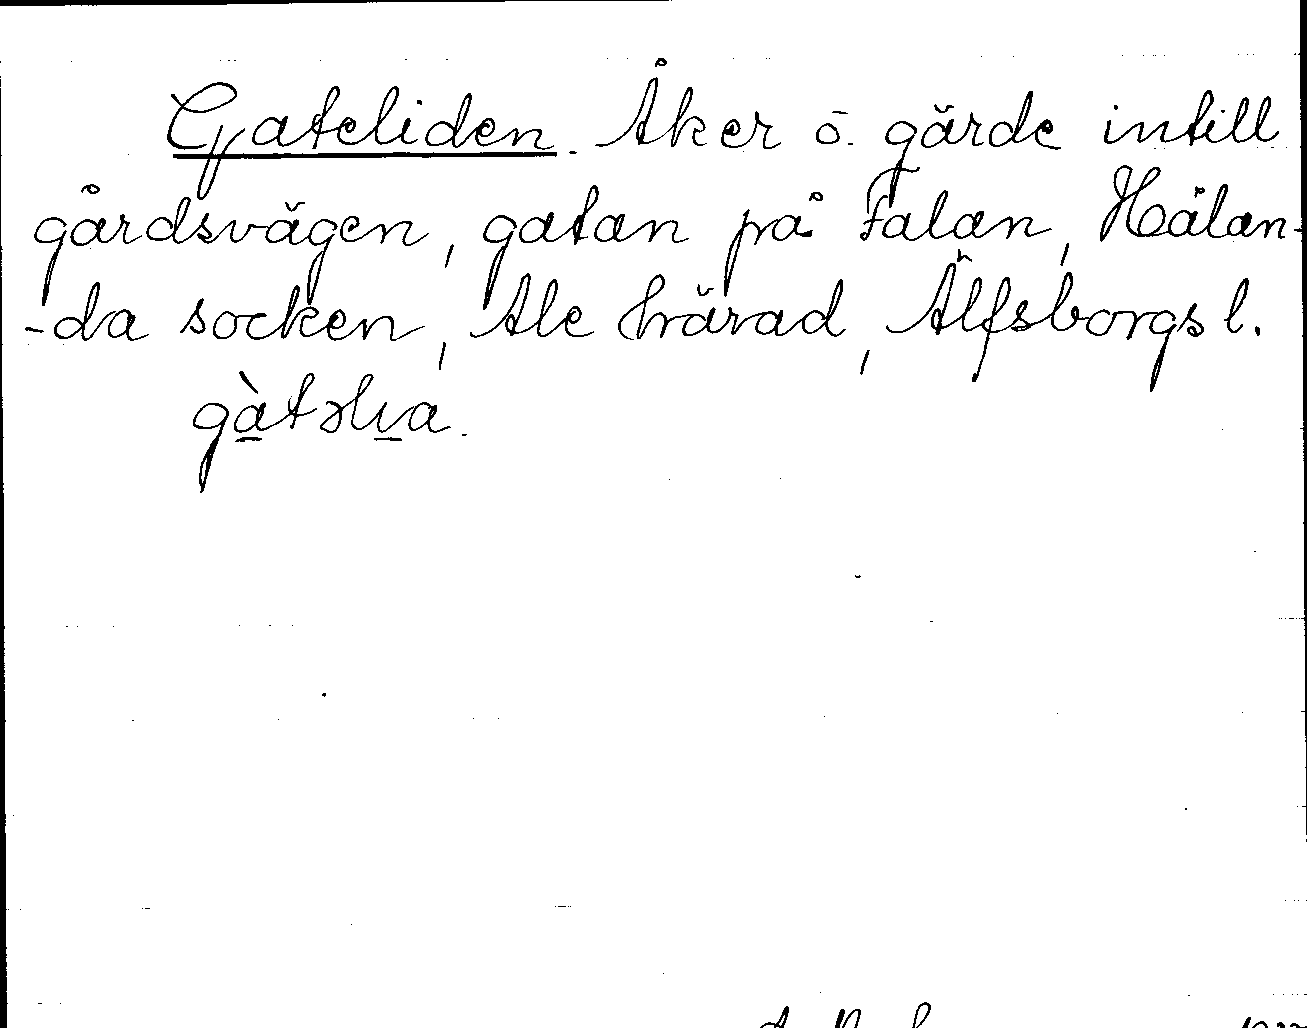 Gateliden. Åker o. gärde intill
gårdsvägen, gatan på Falan, Hålan-
-da socken, Ale härad, Älfsborgs l.
gàtəlıa.